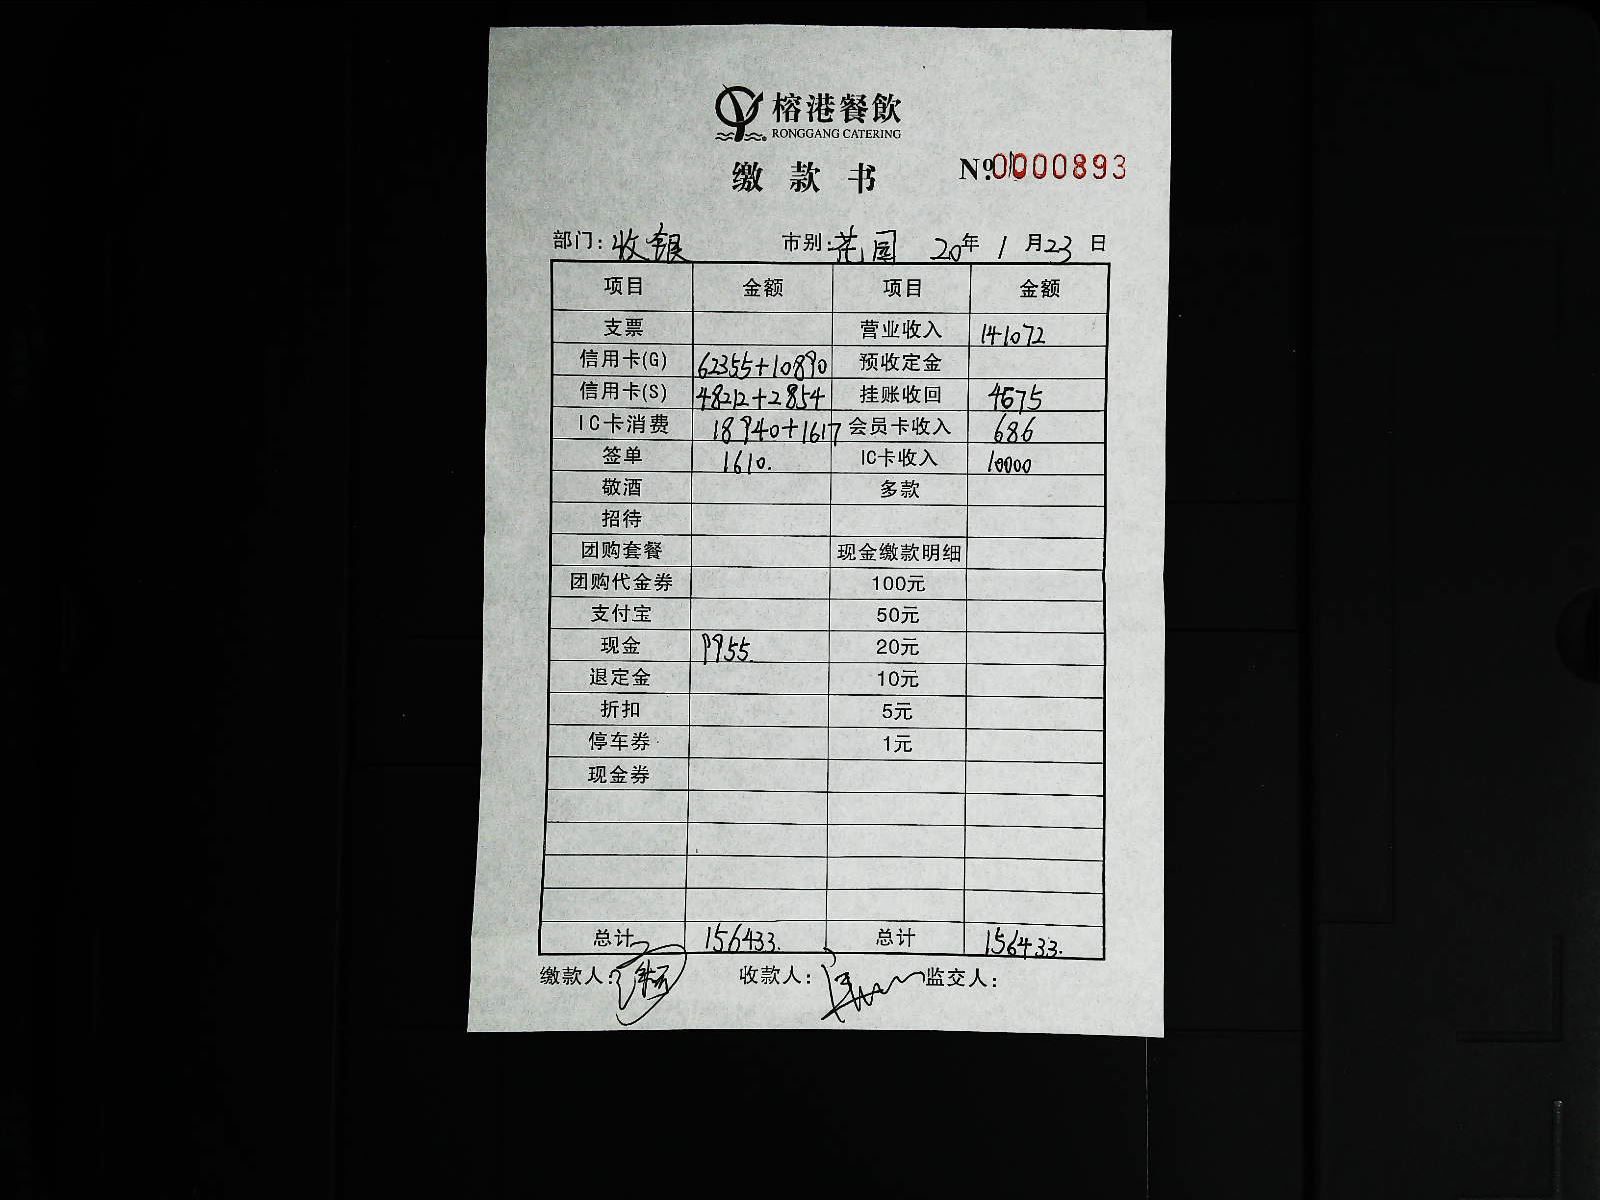 榕港餐飲
RONGGANG CATERING
缴款书 №0000893
部门：收银 市别：花园 20年1月23日
项目 金额 项目 金额
支票 营业收入 141072
信用卡(G) 62355+10890 预收定金
信用卡(S) 48212+2854 挂账收回 4675
IC卡消费 18940+1617 会员卡收入 686
签单 1610. IC卡收入 10000
敬酒 多款
招待
团购套餐 现金缴款明细
团购代金券 100元
支付宝 50元
现金 9955 20元
退定金 10元
折扣 5元
停车券 1元
现金券
总计 156433. 总计 156433.
缴款人： 收款人： 监交人：